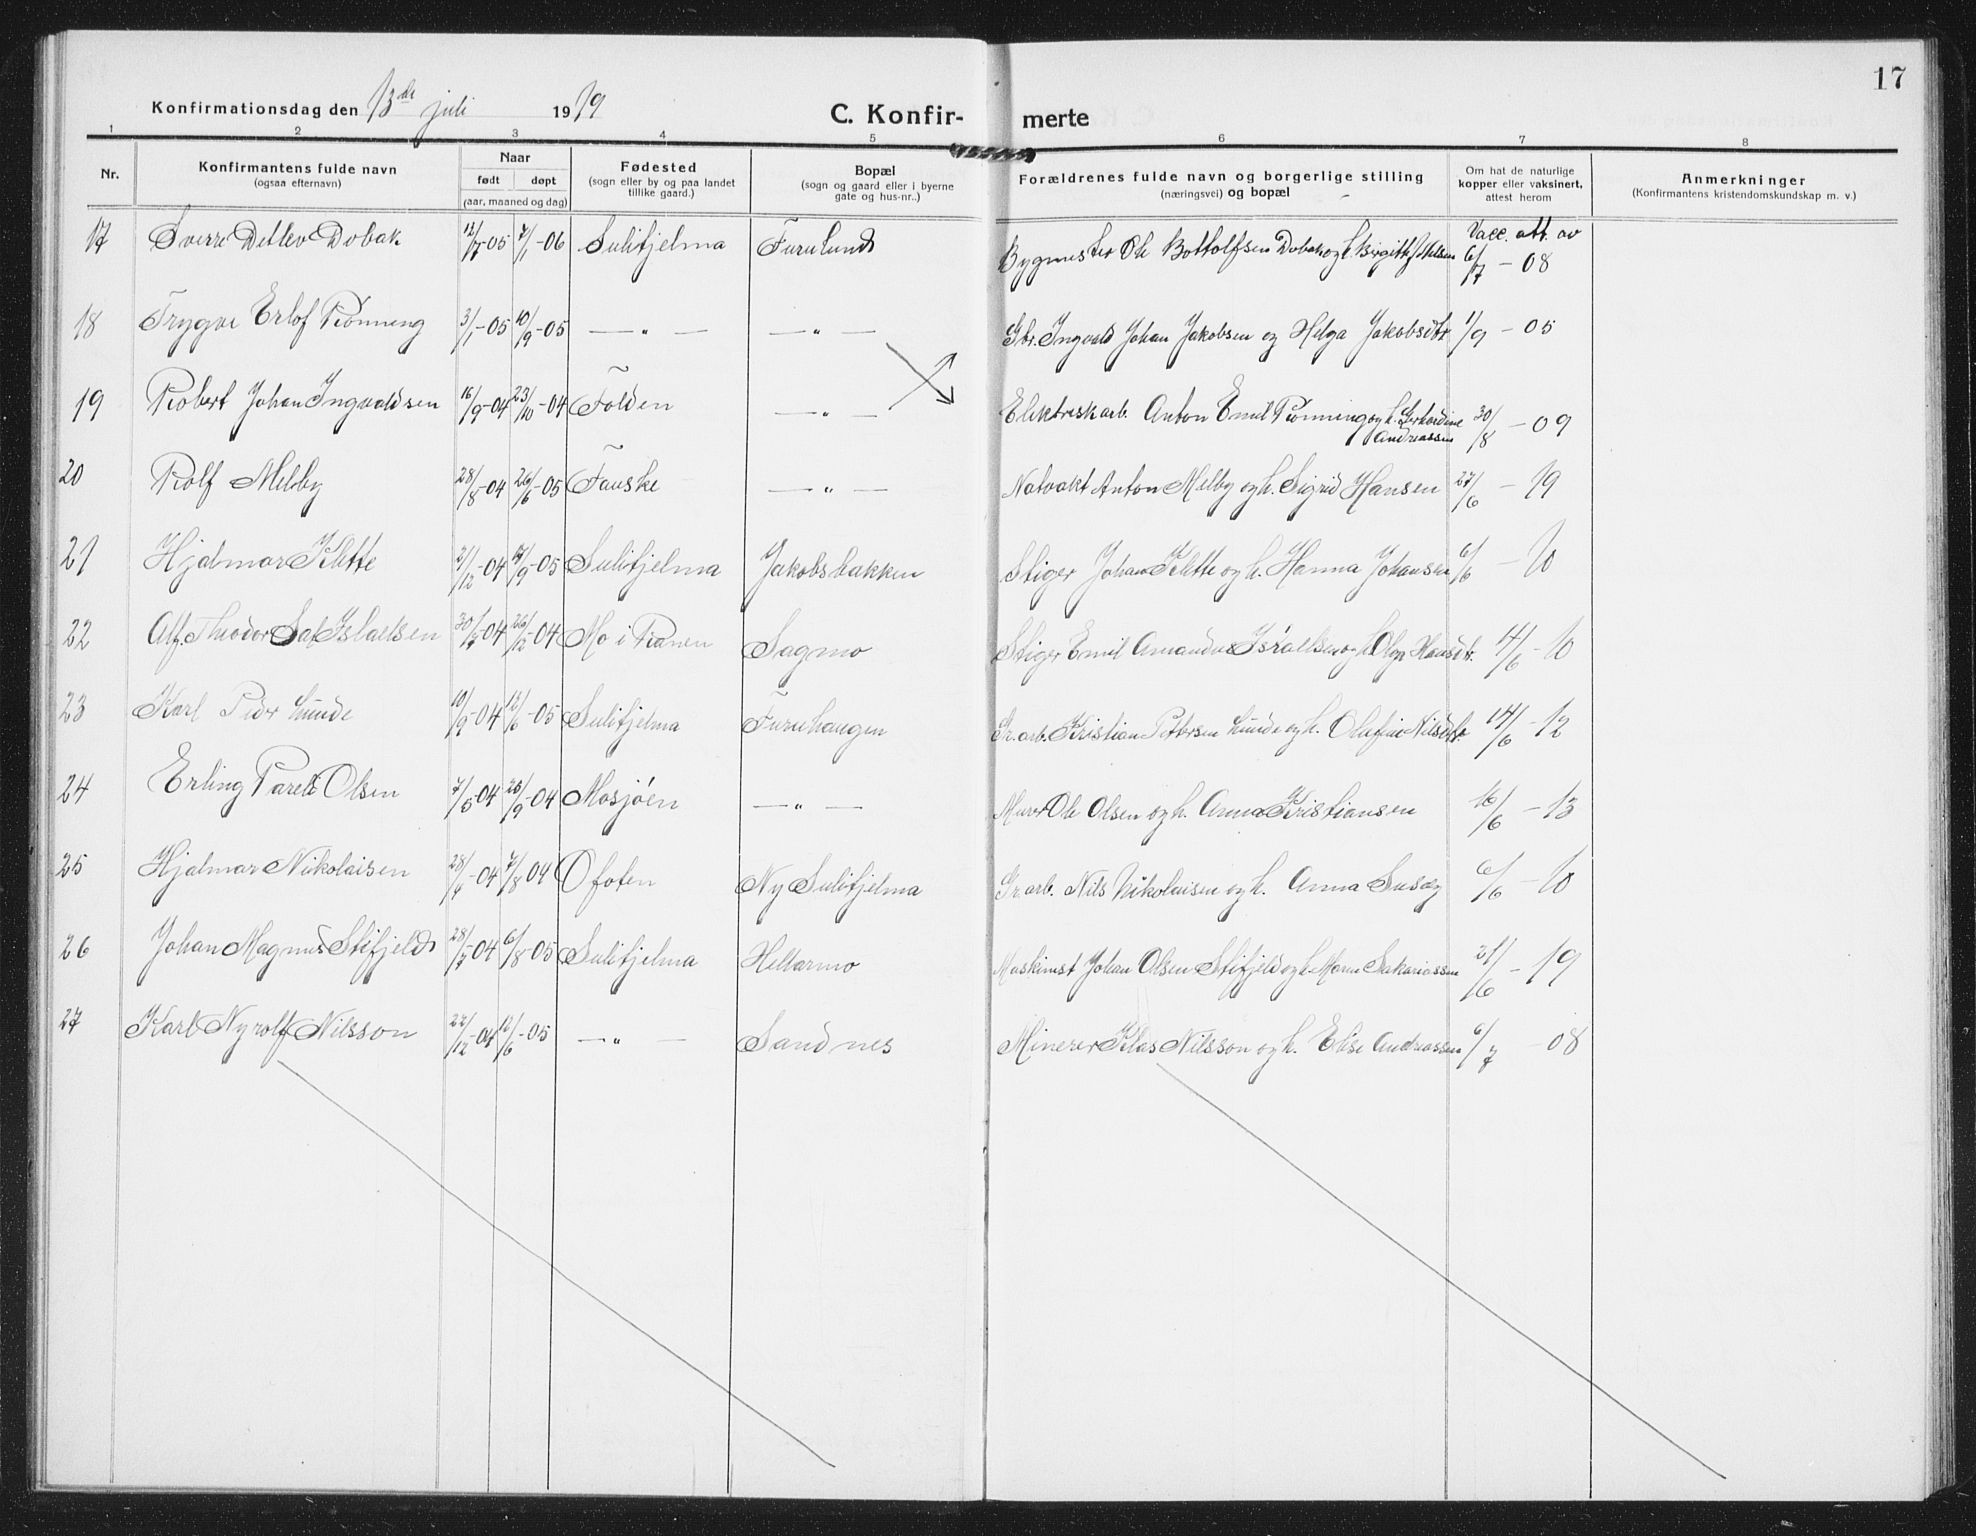 17
Konfirmationsdag den 13de juli 1919
C. Konfir- merte
1 2 3 4 5 6 7 8
Nr.
Konfirmantens fulde navn
(ogsaa efternavn)
Naar
født døpt
(aar, maaned og dag)
Fødested
(sogn eller by og paa landet
tillike gaard.)
Bopæl
(sogn og gaard eller i byerne
gate og hus-nr..)
Forældrenes fulde navn og borgerlige stilling
(næringsvei) og bopæl
Om hat de naturlige
kopper eller vaksinert,
attest herom
Anmerkninger
(Konfirmantens kristendomskundskap m. v.)
Vacc. att. av
17 Sverre Detlev Dobak 12/7-05 7/1-06 Sulitjelma Furulund Bygmester Ole Bottolfsen Dobak og h. Birgitte Nilsen 6/7 - 08
18 Trygve Erlof Rönning 3/1-05 10/9-05 — " — — " — Gbr. Ingvald Johan Jakobsen og Helga Jakobsdtr 1/9 - 05
19 Robert Johan Ingvaldsen 16/9-04 23/10-04 Folden — " — Elektriskarb. Anton Emil Rönning og h. Gerhardine
Andreassen 30/8 - 09
20 Rolf Melby 28/8-04 26/6-05 Fauske — " — Natvakt Anton Melby og h. Sigrid Hansen 27/6 - 19
21 Hjalmar Klette 21/12-04 17/9-05 Sulitjelma Jakobsbakken Stiger Johan Klette og h. Hanna Johansen 6/6 - 10
22 Alf Theodor Israelsen 30/7-04 26/12-04 Mo i Ranen Sagmo Stiger Emil Amandus Israelsen og h. Olga Hansdtr. 14/6 - 10
23 Karl Peder Lunde 10/9-04 15/6-05 Sulitjelma Furuhaugen Gr.arb. Kristian Petersen Lunde og h. Olufine Nilsdtr. 14/6 - 12
24 Erling Pareli Olsen 7/5-04 25/9-04 Mosjöen — " — Murer Ole Olsen og h. Anna Kristiansen 16/6 - 13
25 Hjalmar Nikolaisen 28/4-04 7/8 04 Ofoten Ny Sulitjelma Gr.arb. Nils Nikolaisen og h. Anna Susæg 6/6 - 10
26 Johan Magnus Stifjeld 28/7-04 6/8-05 Sulitjelma Hellarmo Maskinist Johan Olsen Stifjeld og h. Maren Sakariassen 21/6 - 19
27 Karl Nyrolf Nilsson 22/12-04 12/6-05 — " — Sandnes Minerer Klas Nilsson og h. Elise Andreassen 6/7 - 08